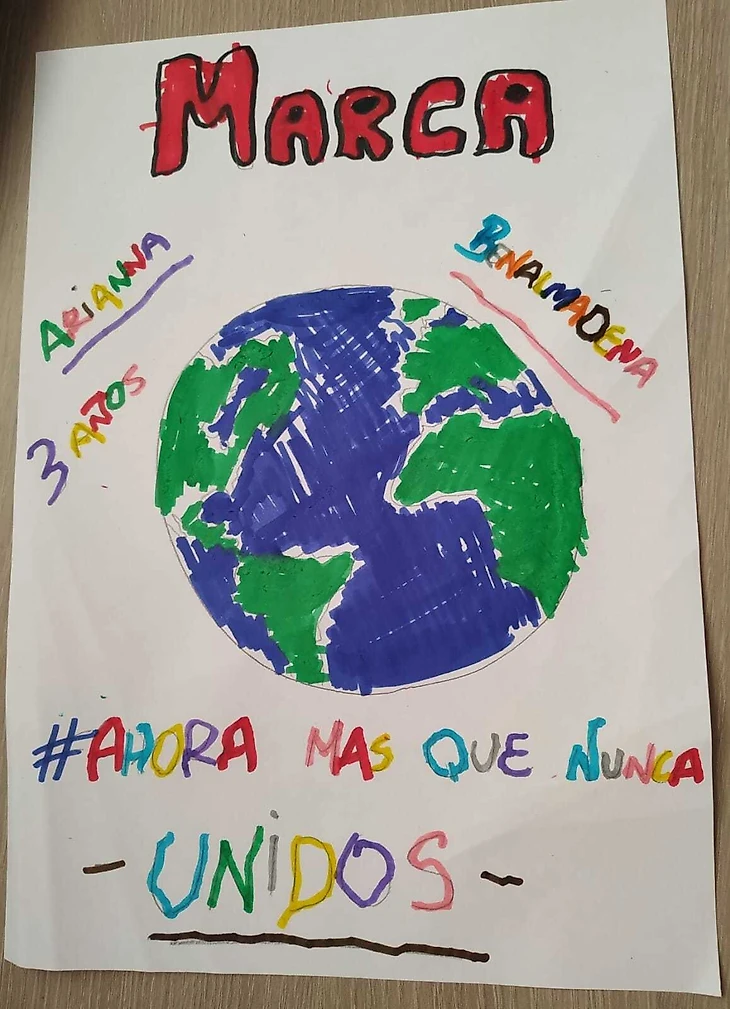 MARCA
ARIANNA
3 AÑOS
BENALMADENA
#AHORA MAS QUE NUNCA
- UNiDOS -